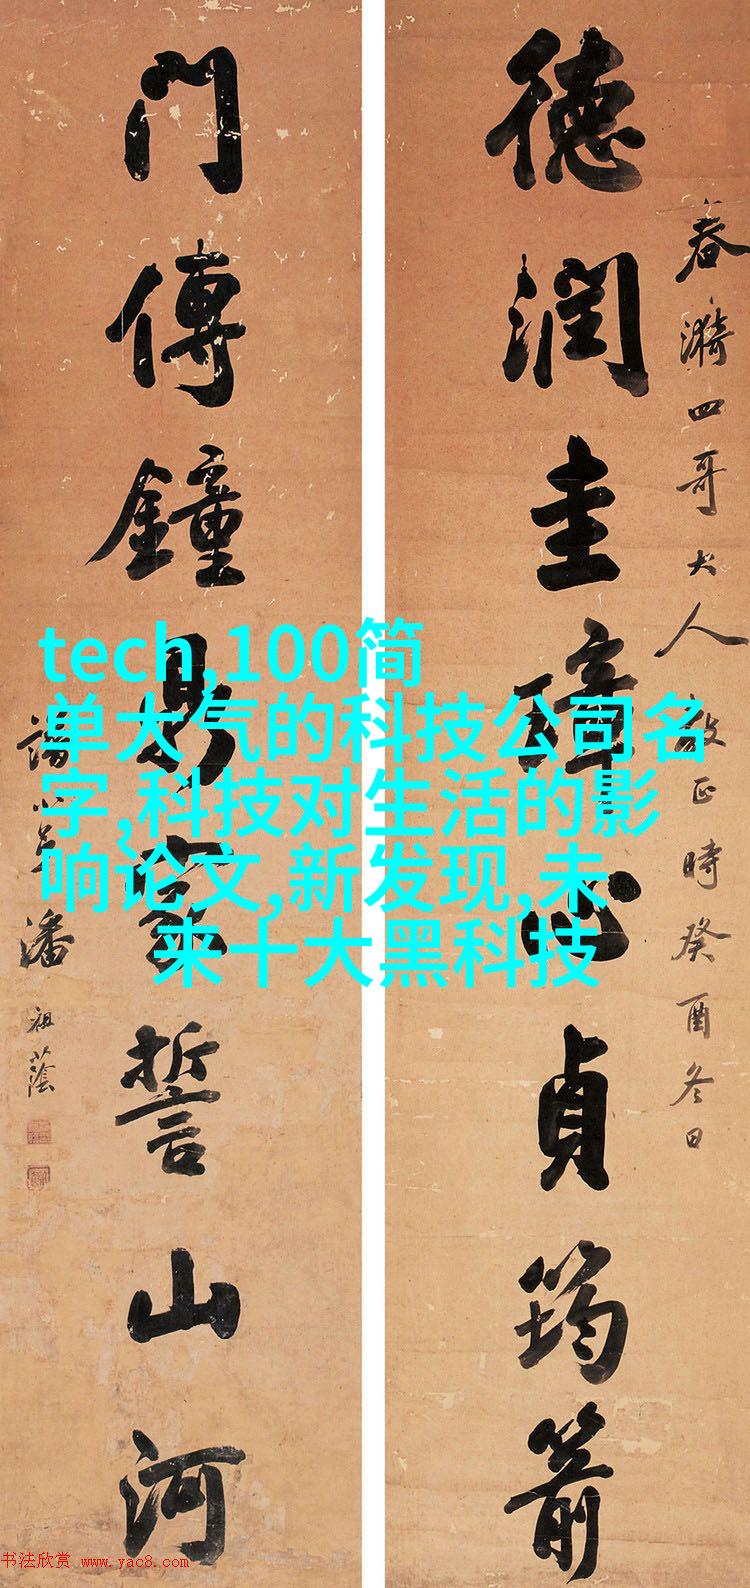 春漪四哥大人教正時癸酉冬日
德潤圭璋心貞筠箭
門傳鐘鼎家誓山河
譜小弟潘祖蔭
tech,100简
单大气的科技公司名
字,科技对生活的影
响论文,新发现,未
来十大黑科技
书法欣赏 www.yac8.com